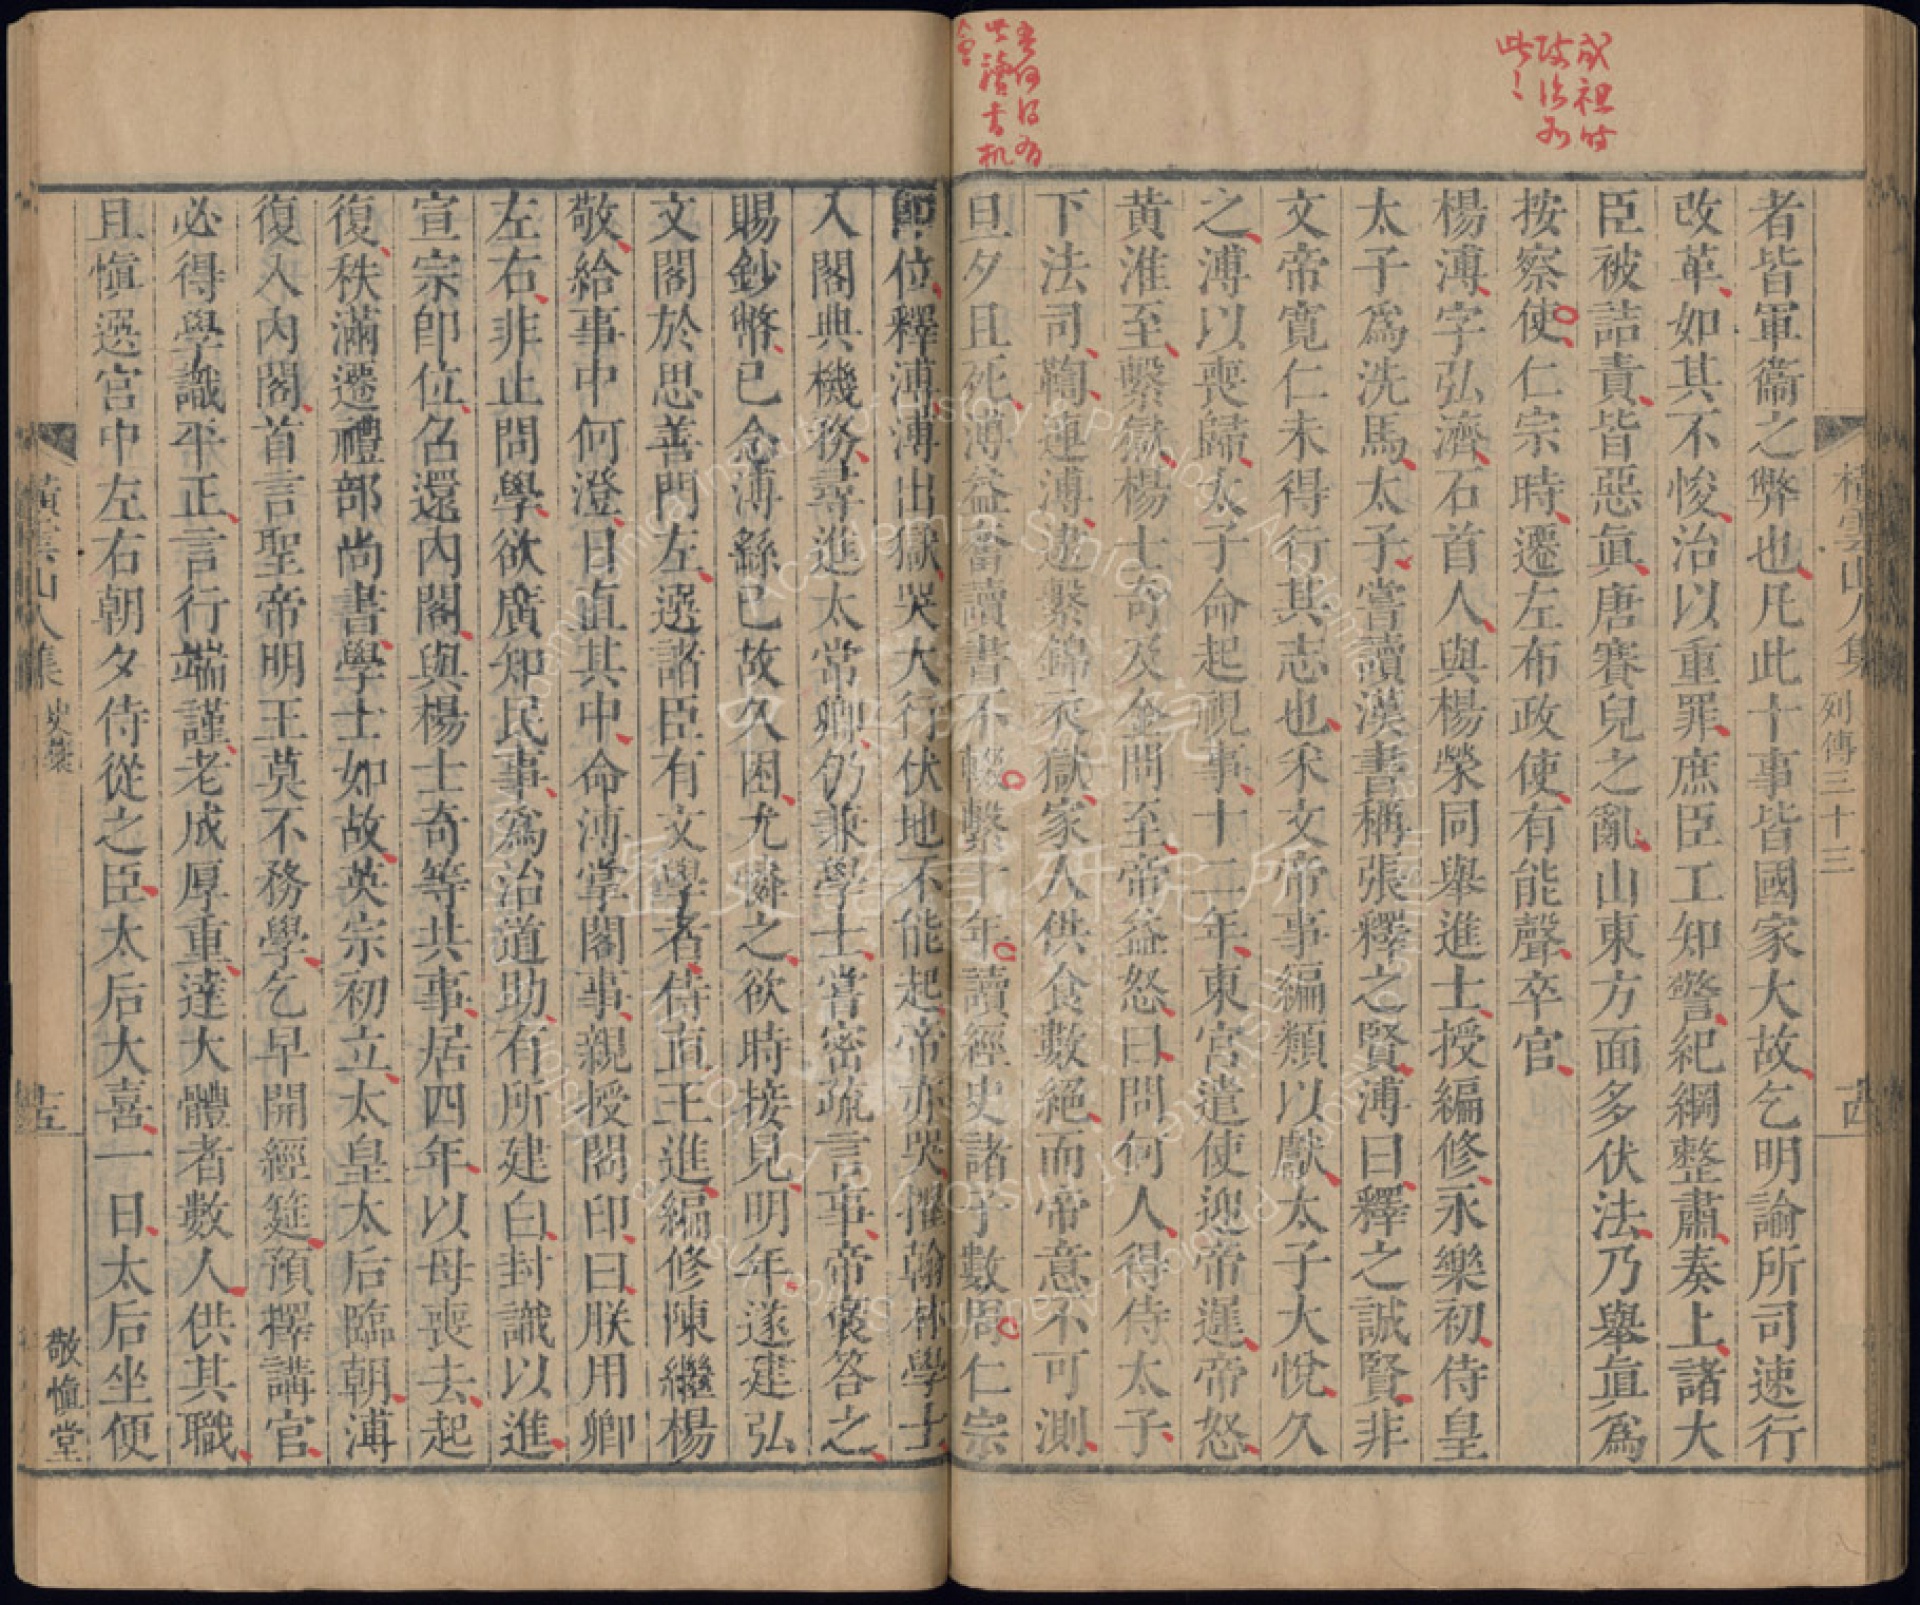 成祖時
此
此讀書机
會
橫雲山人集 列傳三十三
者皆軍衞之弊也凡此十事皆國家大故乞明諭所司速行
改革如其不悛治以重罪庶臣工知警紀綱整肅奏上諸大
臣被詰責皆惡眞唐賽兒之亂山東方面多伏法乃舉眞爲
按察使仁宗時遷左布政使有能聲卒官
楊溥字弘濟石首人與楊榮同舉進士授編修永樂初侍皇
太子爲洗馬太子嘗讀漢書稱張釋之賢溥曰釋之誠賢非
文帝寬仁未得行其志也采文帝事編類以獻太子大悅久
之溥以喪歸太子命起視事十二年東宮遣使迎帝遲帝怒
黃淮至繫獄楊士奇及金問至帝益怒曰問何人得侍太子
下法司鞫連溥逮繫錦衣獄家人供食數絕而帝意不可測
旦夕且死溥益奮讀書不輟繫十年讀經史諸子數周仁宗
卽位釋溥溥出獄哭大行伏地不能起帝亦哭擢翰林學士
入閣典機務尋進太常卿仍兼學士嘗密疏言事帝褒答之
賜鈔幣已念溥繇已故久困尤憐之欲時接見明年遂建弘
文閣於思善門左選諸臣有文學者侍直王進編修陳繼楊
敬給事中何澄日直其中命溥掌閣事親授閣印曰朕用卿
左右非止問學欲廣知民事爲治道助有所建白封識以進
宣宗卽位召還內閣與楊士奇等共事居四年以母喪去起
復秩滿遷禮部尚書學士如故英宗初立太皇太后臨朝溥
復入內閣首言聖帝明王莫不務學乞早開經筵預擇講官
必得學識平正言行端謹老成厚重達大體者數人供其職
且愼選宮中左右朝夕侍從之臣太后大喜一日太后坐便
橫雲山人集 史藁
敬愼堂